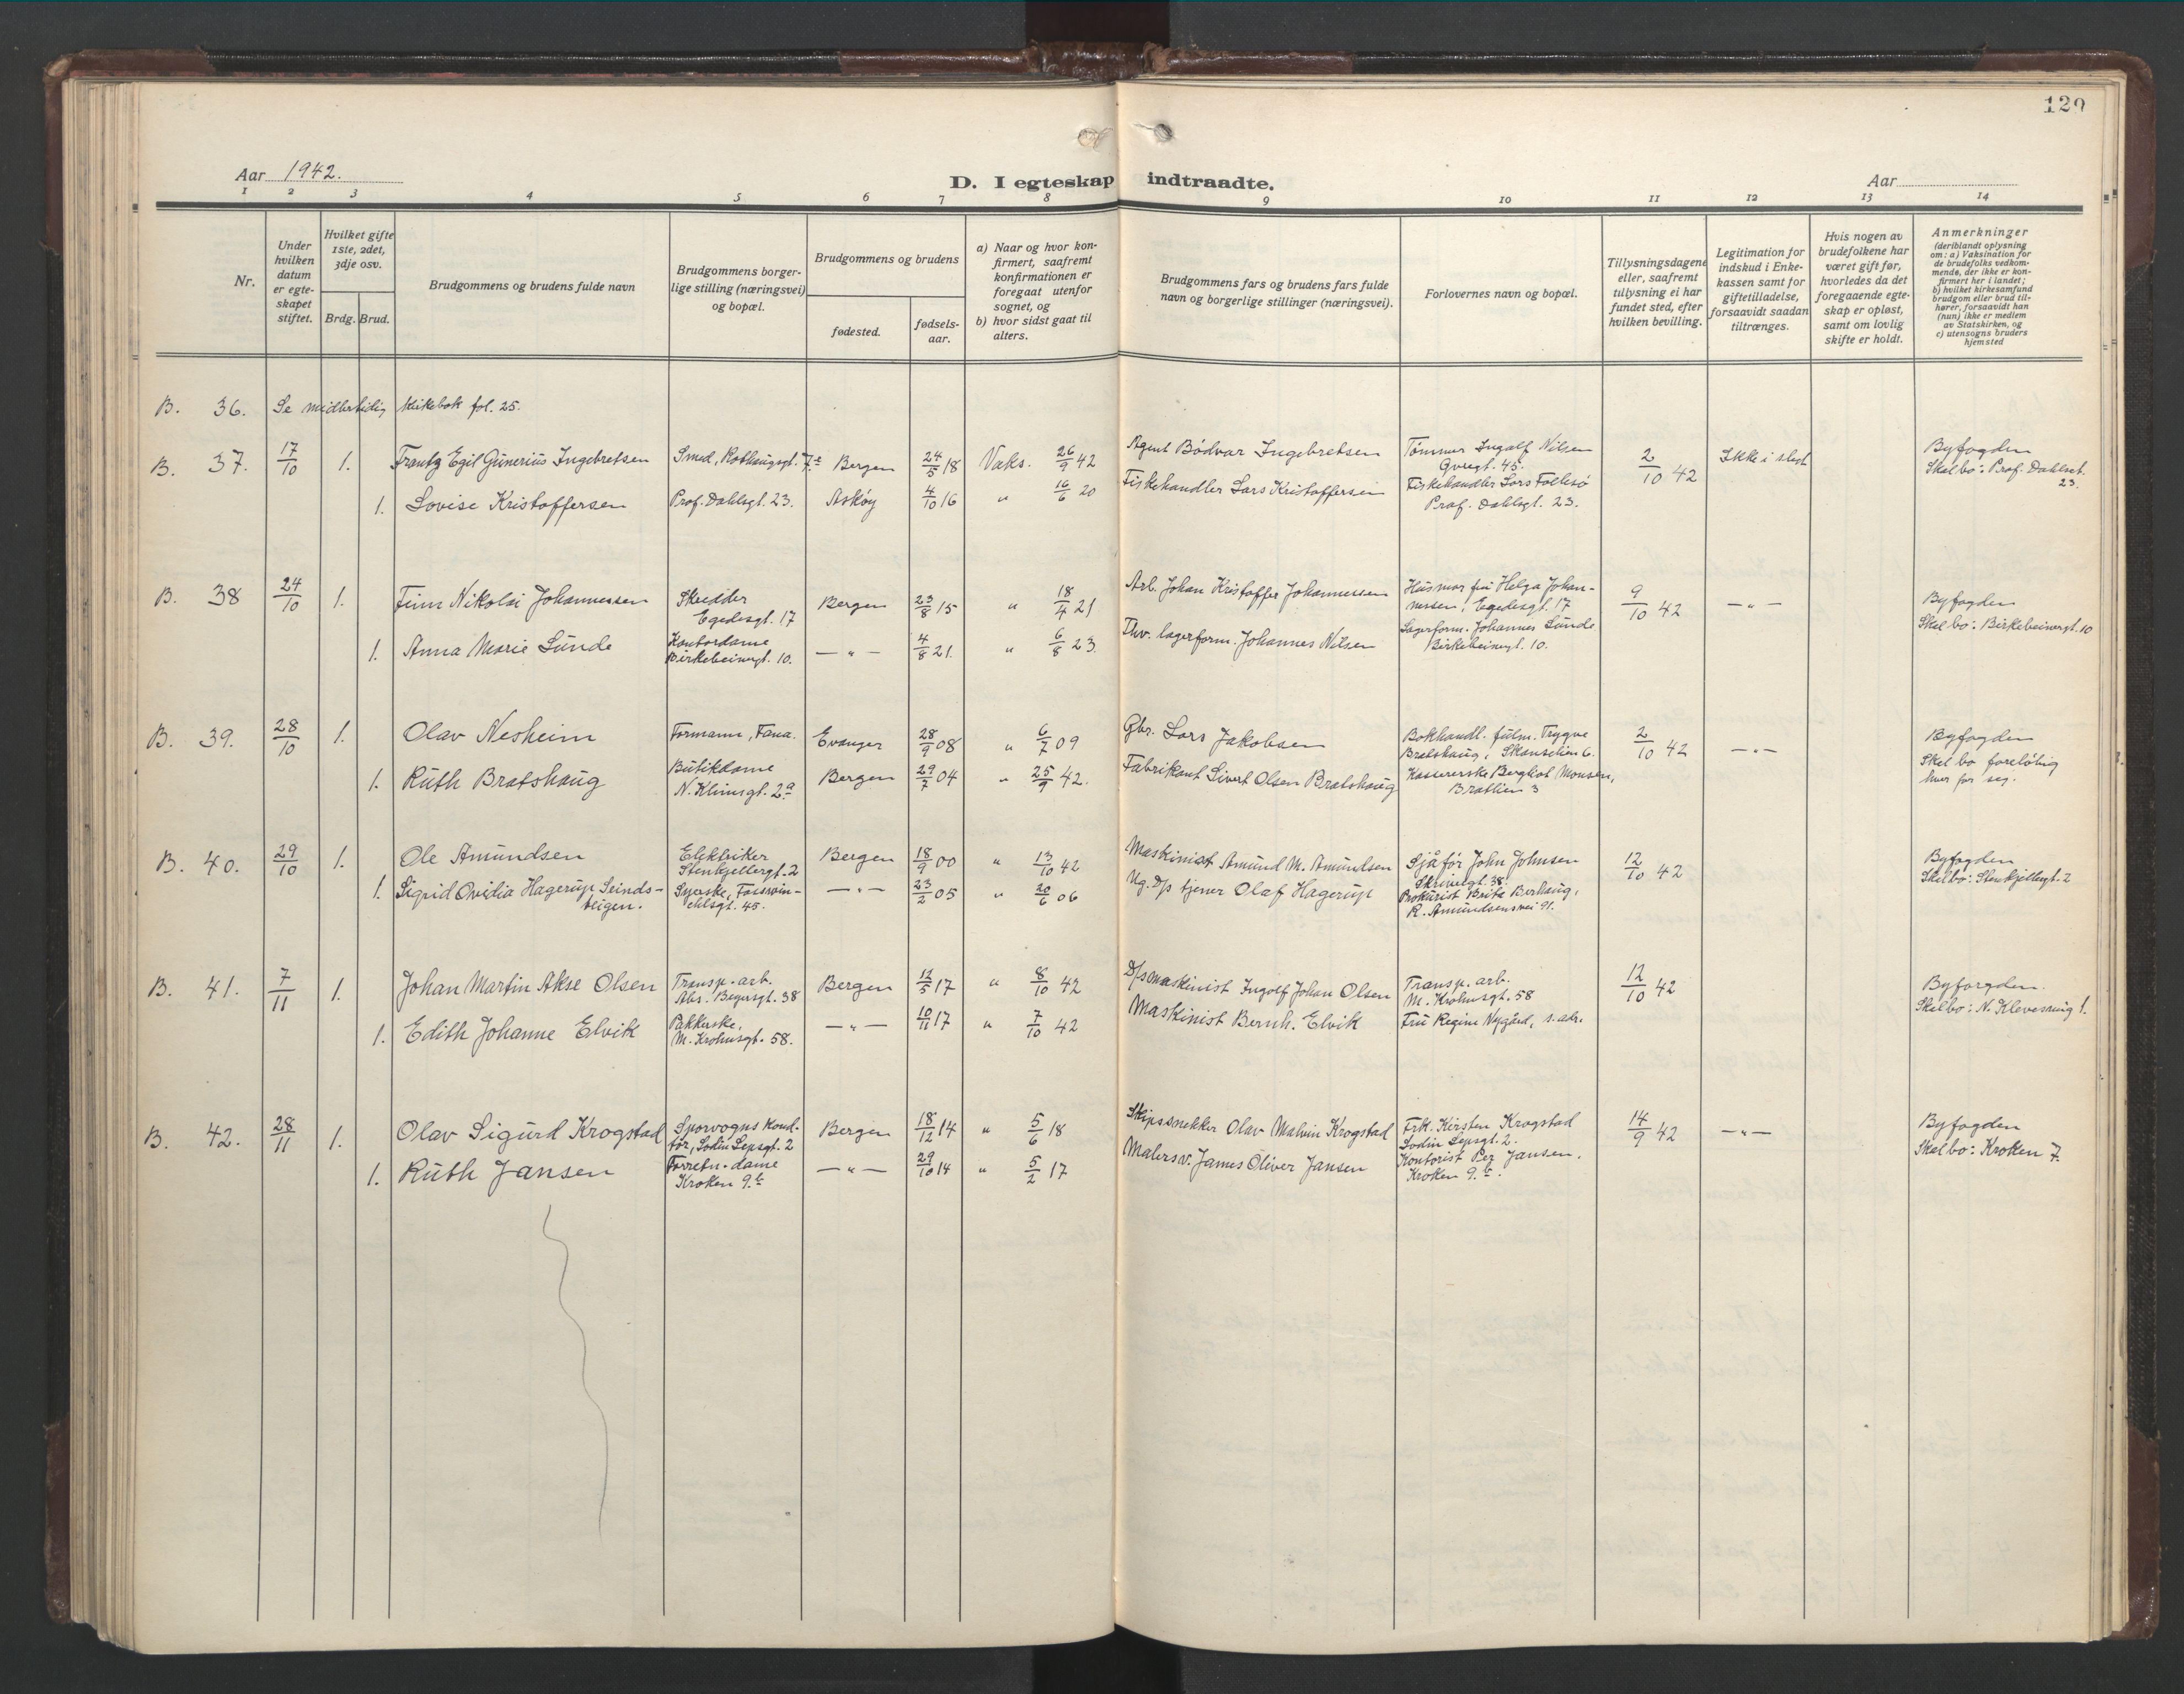 129
Aar 1942.
D. I egteskap indtraadte.
Aar
1 2 3 4 5 6 7 8 9 10 11 12 13 14
Nr.
Under hvilken datum er egte-skapet stiftet.
Hvilket gifte 1ste, 2det, 3dje osv.
Brdg. Brud.
Brudgommens og brudens fulde navn
Brudgommens borger-lige stilling (næringsvei) og bopæl.
Brudgommens og brudens
fødested.
fødsels-aar.
a) Naar og hvor kon-firmert, saafremt konfirmationen er foregaat utenfor sognet, og
b) hvor sidst gaat til alters.
Brudgommens fars og brudens fars fulde navn og borgerlige stillinger (næringsvei).
Forlovernes navn og bopæl.
Tillysningsdagene eller, saafremt tillysning ei har fundet sted, efter hvilken bevilling.
Legitimation for indskud i Enke-kassen samt for giftetilladelse, forsaavidt saadan tiltrænges.
Hvis nogen av brudefolkene har været gift før, hvorledes da det foregaaende egte-skap er opløst, samt om lovlig skifte er holdt.
Anmerkninger
(deriblandt oplysning om: a) Vaksination for de brudefolks vedkom-mende, der ikke er kon-firmert her i landet; b) hvilket kirkesamfund brudgom eller brud til-hører, forsaavidt han (hun) ikke er medlem av Statskirken, og c) utensogns bruders hjemsted
B. 36. Se midlertidig kirkebok fol. 25.
B. 37. 17/10 1. Frantz Egil Gunerius Ingebretsen Smed, Rothaugsgt. 7 Bergen 24/5 18 Vaks. 26/9 42 Agent Bødvar Ingebretsen Tømmer Ingolf Nilsen 2/10 42 Ikke i slegt Byfogden
45. Skal bo: Prof. Dahlsgt. 23.
1. Lovise Kristoffersen Prof. Dahlsgt. 23. Askøy 4/10 16 " 16/6 20 Fiskehandler Lars Kristoffersen Fiskehandler Lars Follesø
Prof. Dahlsgt. 23.
B. 38 24/10 1. Finn Nikolai Johannessen Skredder Bergen 23/8 15 " 18/4 21 Arb. Johan Kristoffer Johannessen Husmor fru Helga Johan- 9/10 42 —"— Byfogden
Egedesgt. 17 nessen, Egedesgt. 17 Skal bo: Birkebeinergt. 10
1. Anna Marie Sunde Kontordame —"— 4/8 21. " 6/8 23. Fhv. lagerform. Johannes Nilsen Lagerform. Johannes Sunde
Birkebeinergt. 10. Birkebeinergt. 10.
B. 39. 28/10 1. Olav Nesheim Formann, Fana. Evanger 28/9 08 " 6/7 09 Gbr. Lars Jakobsen Bokhandl. fullm. Trygve 2/10 42 —"— Byfogden
Bratshaug, Skanselien 6. Skal bo foreløbig
1. Ruth Bratshaug Butikdame Bergen 29/7 04 " 25/9 42. Fabrikant Sivert Olsen Bratshaug Kassererske Bergliot Monsen, hver for seg.
N. Klimsgt. 2a Bratlien 3
B. 40. 29/10 1. Ole Amundsen Elektriker Bergen 18/9 00 " 13/10 42 Maskinist Amund M. Amundsen Sjåfør John Johnsen 12/10 42 Byfogden
Stenkjellergt. 2 38. Skal bo: Stenkjellergt. 2
1. Sigrid Ovidia Hagerup Syerske, Fosswin- —"— 23/2 05 " 20/6 06 Ug. D/s tjener Olaf Hagerup Prokurist
ckelsgt. 45. R. Amundsensvei 91.
B. 41. 7/11 1. Johan Martin Akse Olsen Transp. arb. Bergen 12/5 17 " 8/10 42 D/smaskinist Ingolf Johan Olsen Transp. arb. 12/10 42 Byforgden.
Abs. Beyersgt. 38 M. Krohnsgt. 58 Skal bo: N. 1.
1. Edith Johanne Elvik Pakkerske, —"— 10/11 17 " 7/10 42 Maskinist Bernh. Elvik Fru Regine Nygård, s. adr.
M. Krohnsgt. 58.
B. 42. 28/11 1. Olav Sigurd Krogstad Sporvogns kond- Bergen 18/12 14 " 5/6 18 Skipssnekker Olav Malvin Krogstad Frk. Kirsten Krogstad 14/9 42 —"— Byfogden
tør, Lodin Lepsgt. 2 Lodin Lepsgt. 2. Skal bo: Kroken 7.
1. Ruth Jansen Forretn. dame —"— 29/10 14 " 5/2 17 Malersv. James Oliver Jansen Kontorist Per Jansen.
Kroken 9.b Kroken 9.b.